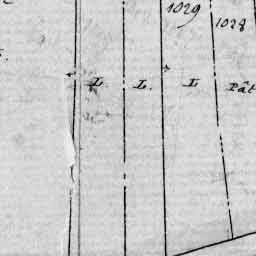 1029
1028
L
L.
L
Pât